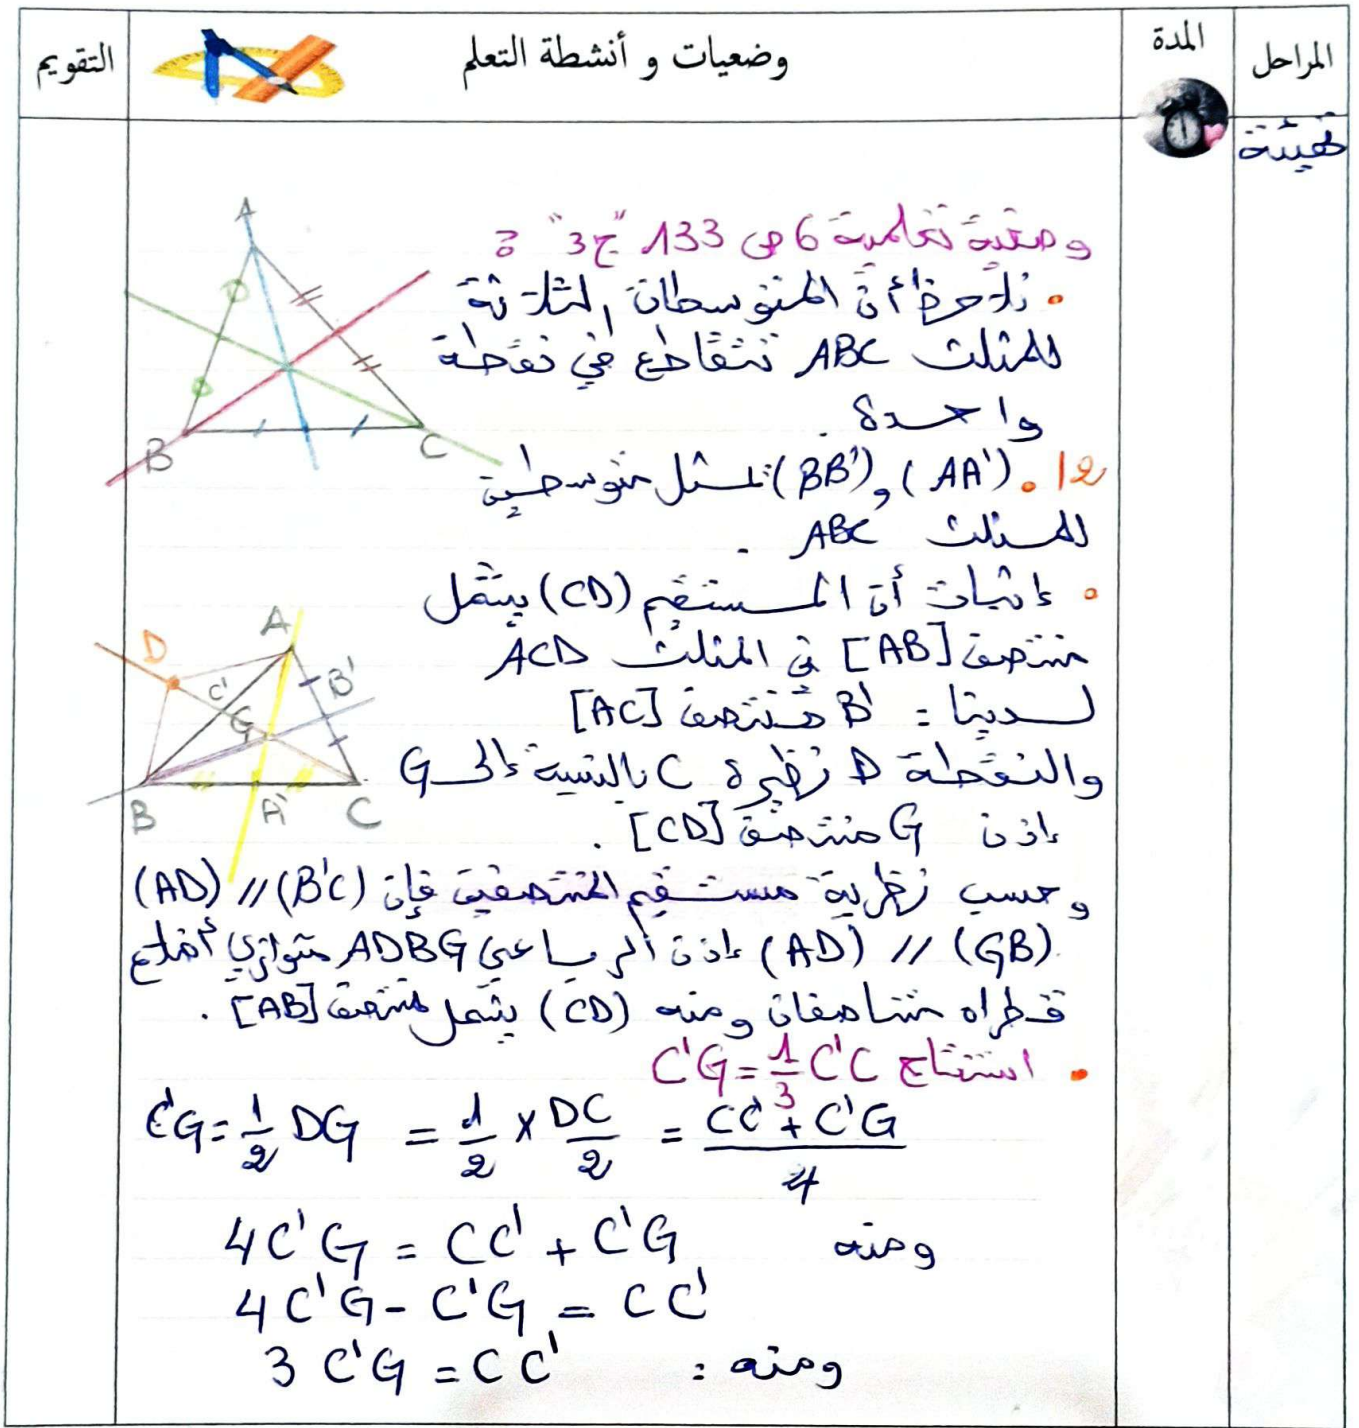 المراحل
المدة
وضعيات و أنشطة التعلم
التقويم
تهيئة
وضعية تعلمية 6 ص 133 "ج3" :
• نلاحظ أن المتوسطات الثلاثة
للمثلث ABC تتقاطع في نقطة
واحدة .
12 • (AA') و (BB') تمثل متوسطية
للمثلث ABC .
• إثبات أن المستقيم (CD) يشمل
منتصف [AB] في المثلث ACD
لدينا : B' منتصف [AC]
والنقطة D نظيرة C بالنسبة إلى G
إذن G منتصف [CD] .
وحسب نظرية مستقيم المنتصفين فإن (B'C) // (AD)
(GB) // (AD) إذن الرباعي ADBG متوازي أضلاع
قطراه متناصفان ومنه (CD) يشمل منتصف [AB] .
• استنتاج C'G = 1/3 C'C
C'G = 1/2 DG = 1/2 × DC/2 = (CC' + C'G)/4
ومنه 4C'G = CC' + C'G
4C'G - C'G = CC'
ومنه : 3C'G = CC'
A
B
C
A
D
C'
B'
G
B
A'
C